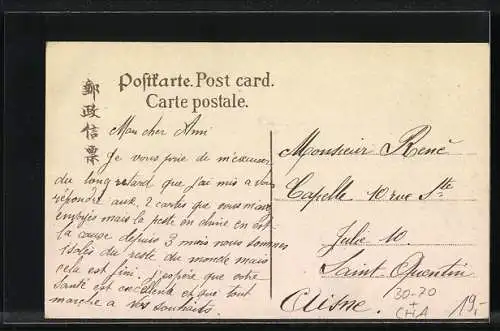 Postkarte. Post card.
Carte postale.
郵政信票
Mon cher Ami
Je vous prie de m'excuser
du long retard que j'ai mis a vous
répondre aux 2 cartes que vous m'avez
envoyés mais la peste en chine en est
la cause depuis 3 mois nous sommes
isolés du reste du monde mais
cela est fini. J'espère que votre
santé est excellente et que tout
marche a vos souhaits.
Monsieur René
Capelle 10 rue Ste
Julie 10.
Saint-Quentin
Aisne.
30-70
+
CHA
19,-